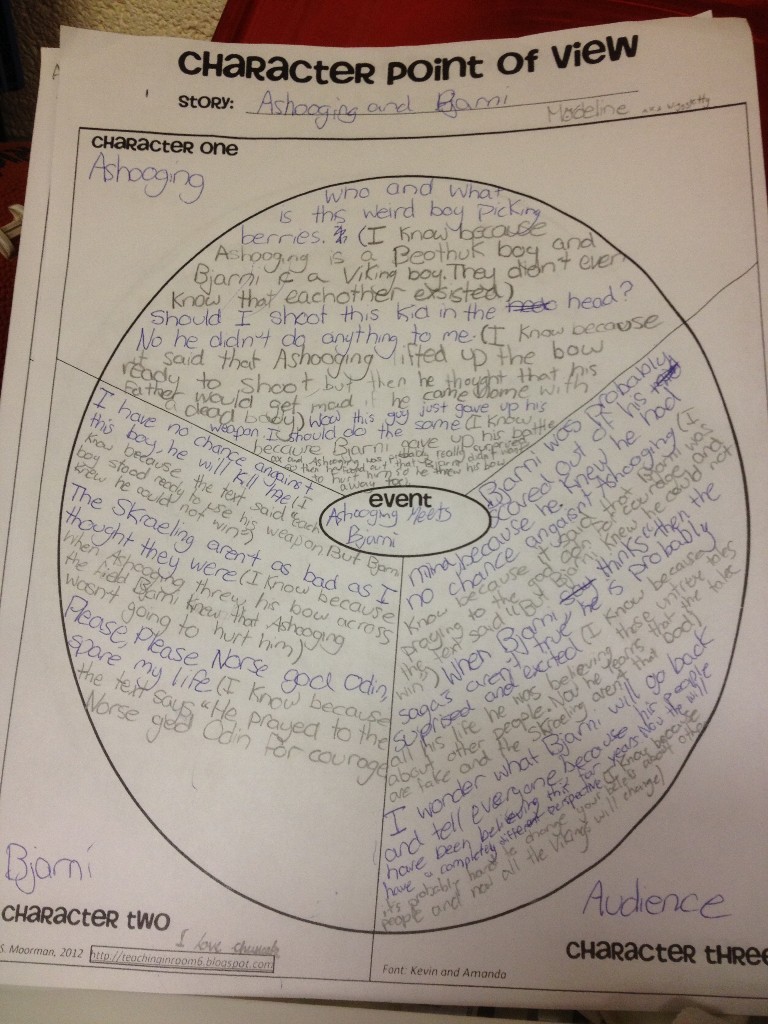 CHARACTER POINT OF VIEW
STORY: Ashooging and Bjarni
Madeline
CHARACTER ONE
Ashooging
Who and what
is this weird boy picking
berries. (I know because
Ashooging is a Beothuk boy and
Bjarni is a Viking boy. They didn't even
know that eachother exsisted)
Should I shoot this kid in the head?
No he didn't do anything to me. (I know because
it said that Ashooging lifted up the bow
ready to shoot but then he thought that his
Father would get mad if he came home with
a dead body) Wow this guy just gave up his
weapon. I should do the same (I know
because Bjarni gave up his battle
ax and Ashooging was probably really surprised
so then he found out that Bjarni didn't want
to hurt him so he threw his bow
away too)
EVENT
Ashooging Meets
Bjarni
I have no chance angainst
this boy, he will kill me! (I
know because the text said each
boy stood ready to use his weapon But Bjarni
knew he could not win)
The Skraeling arent as bad as I
thought they were (I know because
when Ashooging threw his bow across
the field Bjarni knew that Ashooging
wasn't going to hurt him)
Please, Please Norse god Odin,
spare my life (I know because
the text says "He prayed to the
Norse god Odin for courage
Bjarni
CHARACTER TWO
Bjarni was probably
scared out of his
mind because he knew he had
no chance angainst Ashooging (I
know because it said that Bjarni was
praying to the god Odin for courage and
the text said "But Bjarni knew he could not
win") When Bjarni thinks "then the
sagas aren't true" he is probably
surprised and excited (I know because
all his life he was believing those untrue tales
about other people. Now he learns that the tales
are fake and the Skraeling arent that bad)
I wonder what Bjarni will go back
and tell everyone because his people
have been believing this for years. Now the will
have a completely different perspective (I know because
it's probably hard to change your beliefs about other
people and now all the Vikings will change)
Audience
CHARACTER THREE
I love
S. Moorman, 2012 http://teachinginroom6.blogspot.com
Font: Kevin and Amanda